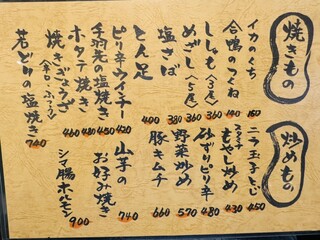 焼きもの
イカのくち 150
合鴨のつくね 190
ししゃも（3尾） 360
めざし（5尾） 360
塩さば 380
とん足 400
ピリ辛ウインナー 420
手羽先の塩焼き 450
ホタテ焼き 480
焼きぎょうざ 460
若どりの塩焼き 740
炒めもの
ニラ玉子とじ 450
もやし炒め 430
砂ずりピリ辛 480
野菜炒め 570
豚キムチ 660
山芋のお好み焼き 740
シマ腸ホルモン 900